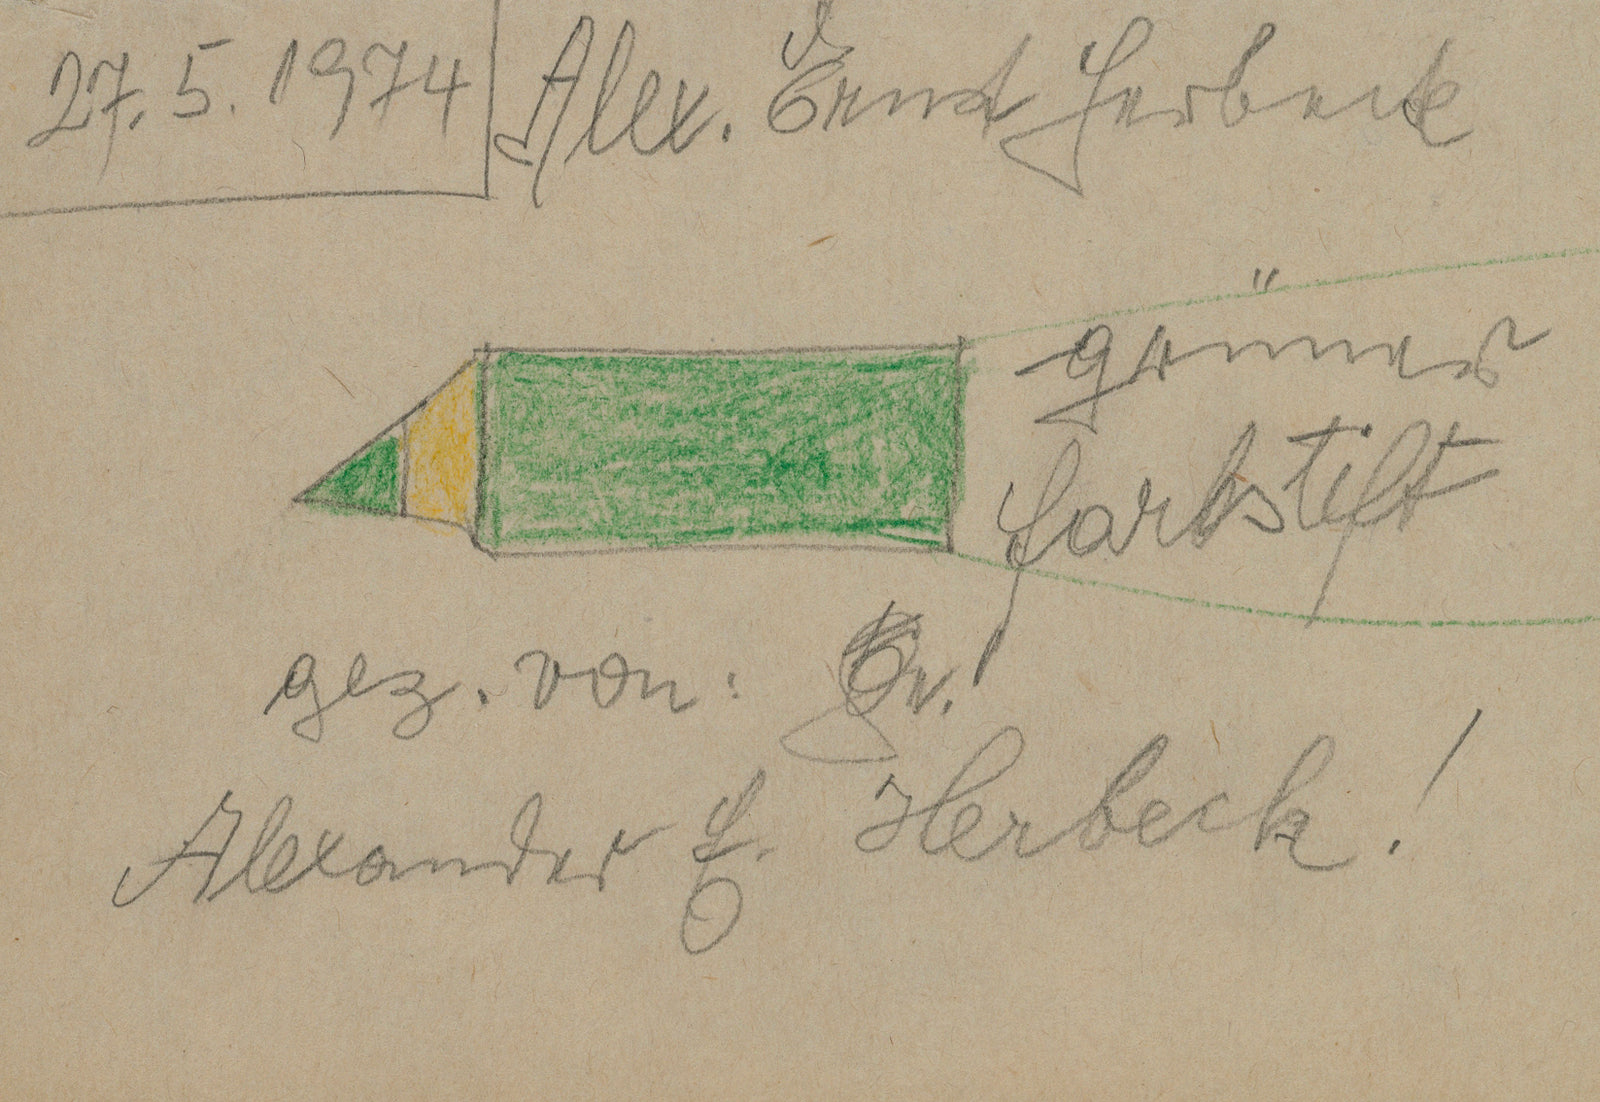 27.5.1974 Alex. Ernst Herbeck
grüner
farbstift
gez. von:
Alexander E. Herbeck!